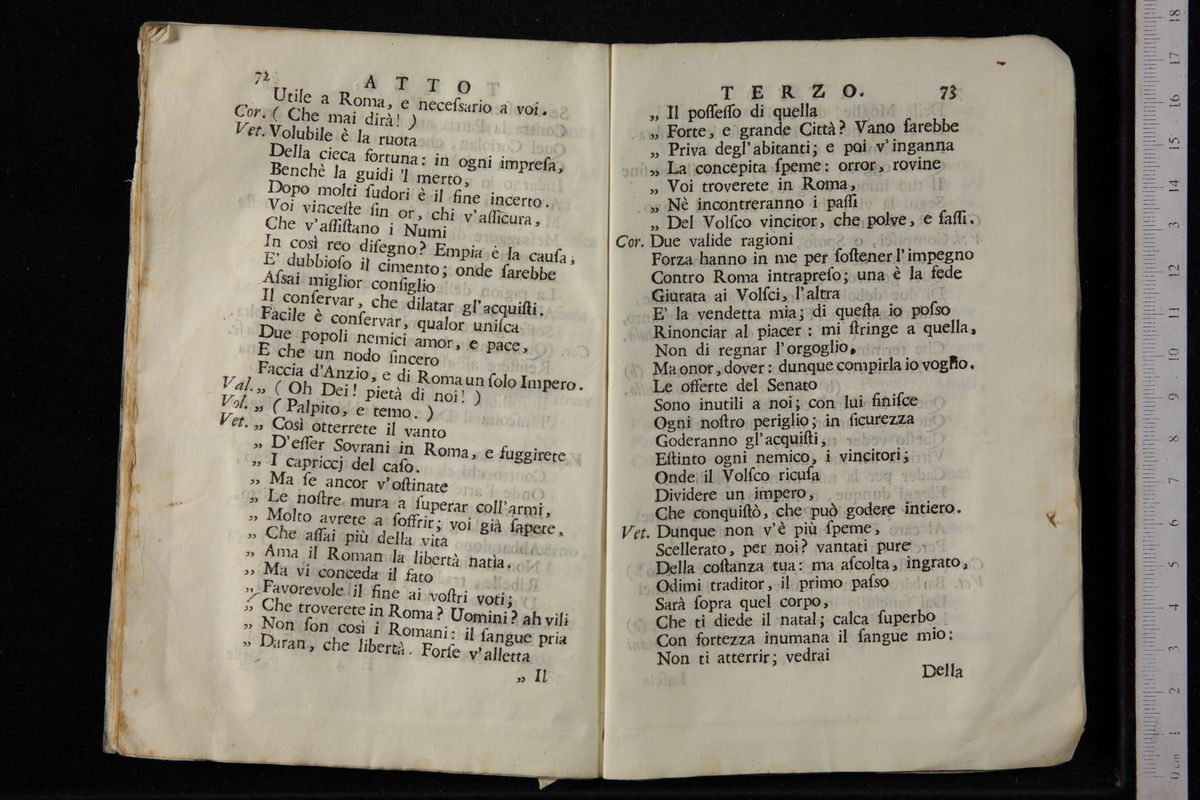 72
ATTO
Utile a Roma, e neceſsario a voi.
Cor. ( Che mai dirà! )
Vet. Volubile è la ruota
Della cieca fortuna: in ogni impreſa,
Benchè la guidi 'l merto,
Dopo molti ſudori è il fine incerto.
Voi vinceſte ſin or, chi v'aſſicura,
Che v'aſſiſtano i Numi
In così reo diſegno? Empia è la cauſa,
E' dubbioſo il cimento; onde ſarebbe
Aſsai miglior conſiglio
Il conſervar, che dilatar gl'acquiſti.
Facile è conſervar, qualor uniſca
Due popoli nemici amor, e pace,
E che un nodo ſincero
Faccia d'Anzio, e di Roma un ſolo Impero.
Val. „ ( Oh Dei! pietà di noi! )
Vol. „ ( Palpito, e temo. )
Vet. „ Così otterrete il vanto
„ D'eſſer Sovrani in Roma, e fuggirete
„ I capriccj del caſo.
„ Ma ſe ancor v'oſtinate
„ Le noſtre mura a ſuperar coll'armi,
„ Molto avrete a ſoffrir; voi già ſapete,
„ Che aſſai più della vita
„ Ama il Roman la libertà natìa.
„ Ma vi conceda il fato
„ Favorevole il fine ai voſtri voti;
„ Che troverete in Roma? Uomini? ah vili
„ Non ſon così i Romani: il ſangue pria
„ Daran, che libertà. Forſe v'alletta
„ Il
TERZO.
73
„ Il poſſeſſo di quella
„ Forte, e grande Città? Vano ſarebbe
„ Priva degl'abitanti; e poi v'inganna
„ La concepita ſpeme: orror, rovine
„ Voi troverete in Roma,
„ Nè incontreranno i paſſi
„ Del Volſco vincitor, che polve, e ſaſſi.
Cor. Due valide ragioni
Forza hanno in me per ſoſtener l'impegno
Contro Roma intrapreſo; una è la fede
Giurata ai Volſci, l'altra
E' la vendetta mia; di queſta io poſso
Rinonciar al piacer: mi ſtringe a quella,
Non di regnar l'orgoglio,
Ma onor, dover: dunque compirla io voglio.
Le offerte del Senato
Sono inutili a noi; con lui finiſce
Ogni noſtro periglio; in ſicurezza
Goderanno gl'acquiſti,
Eſtinto ogni nemico, i vincitori;
Onde il Volſco ricuſa
Dividere un impero,
Che conquiſtò, che può godere intiero.
Vet. Dunque non v'è più ſpeme,
Scellerato, per noi? vantati pure
Della coſtanza tua: ma aſcolta, ingrato,
Odimi traditor, il primo paſso
Sarà ſopra quel corpo,
Che ti diede il natal; calca ſuperbo
Con fortezza inumana il ſangue mio:
Non ti atterrir; vedrai
Della